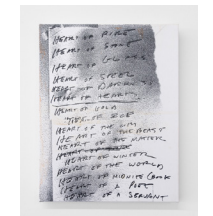 HEART OF FIRE
HEART OF
HEART OF GLASS
HEART OF STEEL
HEART OF
HEART OF
HEART OF GOLD
OF ICE
HEART OF THE
HEART OF THE BEAST
HEART OF THE MATTER
HEART OF
HEART OF WINTER
HEART OF THE WORLD
HEART OF MIDNITE
HEART OF A POET
HEART OF A SERVANT